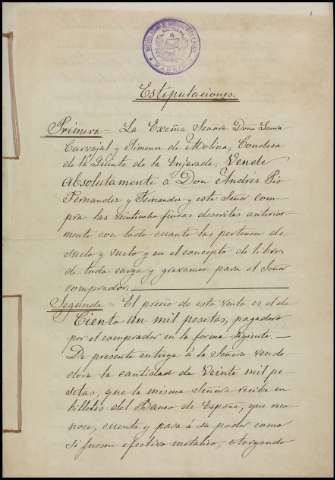 Estipulaciones.
Primera = La Excma Señora Doña
Carvajal y Jimenez de Molina, Condesa
de la Quinta de la Enjarada, Vende
absolutamente á Don Andrés Pio
Fernandez y Fernandez y este Señor com=
pra las veintiocho fincas descritas anterior=
mente con todo cuanto las pertenece de
suelo y vuelo y en el concepto de libres
de toda carga y gravamen para el Señor
comprador.
Segunda = El precio de esta venta es el de
Ciento un mil pesetas, pagadero
por el comprador en la forma siguiente. =
De presente entrega á la Señora vende=
dora la cantidad de Veinte mil pe=
setas, que la misma Señora recibe en
billetes del Banco de España, que reco=
noce, cuenta y pasa á su poder como
si fueran efectivo metalico, otorgando